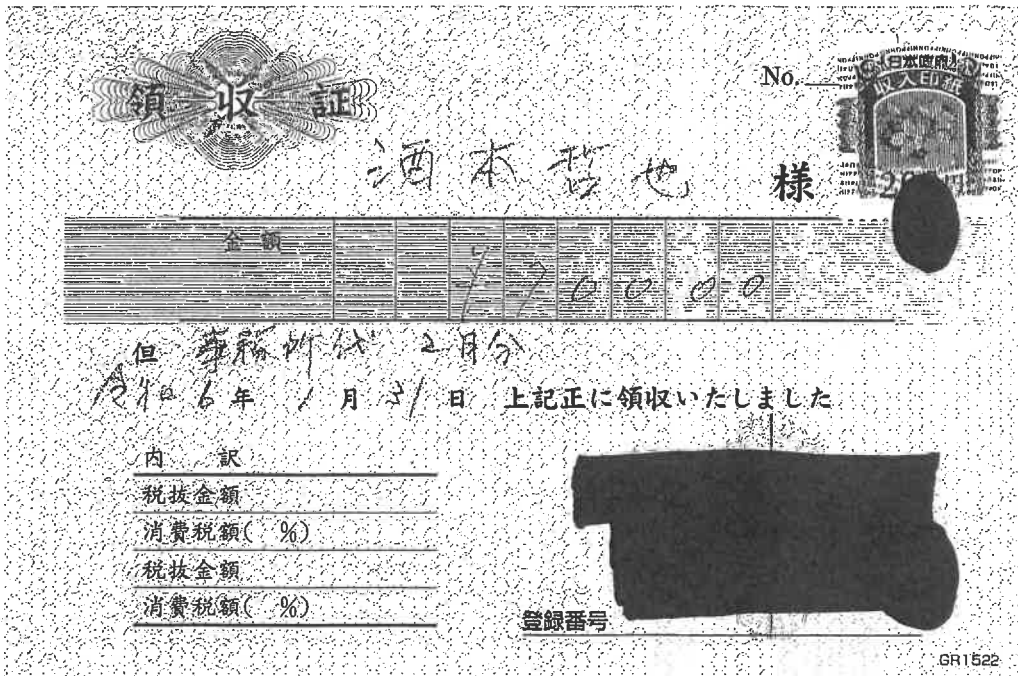 領収証
No.
日本政府
収入印紙
酒本哲也 様
金額 170000
但 事務所代 2月分
令和6年 1月31日 上記正に領収いたしました
内 訳
税抜金額
消費税額( %)
税抜金額
消費税額( %)
登録番号
GR1522